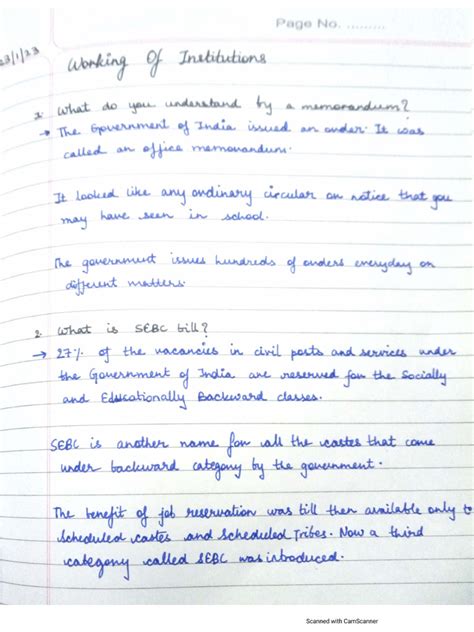 Page No. .........
23/1/23
Working Of Institutions
1. What do you understand by a memorandum?
→ The Government of India issued an order. It was
called an office memorandum.
It looked like any ordinary circular or notice that you
may have seen in school.
The government issues hundreds of orders everyday on
different matters.
2. What is SEBC bill?
→ 27% of the vacancies in civil posts and services under
the Government of India are reserved for the Socially
and Educationally Backward classes.
SEBC is another name for all the castes that come
under backward category by the government.
The benefit of job reservation was till then available only to
Scheduled castes and Scheduled Tribes. Now a third
category called SEBC was introduced.
Scanned with CamScanner